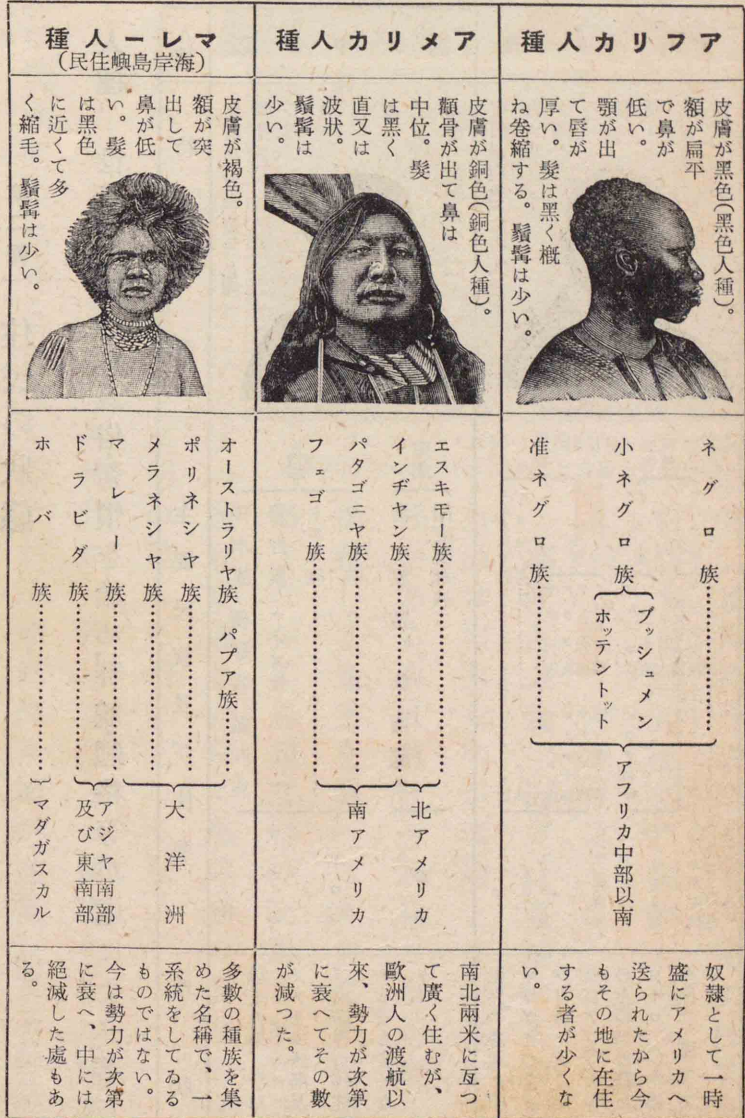 アフリカ人種
皮膚が黑色(黑色人種)。
額が扁平
で鼻が
低い。
顎が出
て唇が
厚い。髮は黑く概
ね卷縮する。鬚髯は少い。
ネグロ族
小ネグロ族
ブッシュメン
ホッテントット
准ネグロ族
アフリカ中部以南
奴隷として一時
盛にアメリカへ
送られたから今
もその地に在住
する者が少くな
い。
アメリカ人種
皮膚が銅色(銅色人種)。
顴骨が出て鼻は
中位。髮
は黑く
直又は
波狀。
鬚髯は
少い。
エスキモー族
インヂヤン族
パタゴニヤ族
フェゴ族
北アメリカ
南アメリカ
南北兩米に亙つ
て廣く住むが、
歐洲人の渡航以
來、勢力が次第
に衰へてその數
が減つた。
マレー人種
(海岸島嶼住民)
皮膚が褐色。
額が突
出して
鼻が低
い。髮
は黑色
に近くて多
く縮毛。鬚髯は少い。
オーストラリヤ族 パプア族
ポリネシヤ族
メラネシヤ族
マレー族
ドラビダ族
ホバ族
大洋洲
アジヤ南部
及び東南部
マダガスカル
多數の種族を集
めた名稱で、一
系統をしてゐる
ものではない。
今は勢力が次第
に衰へ、中には
絕滅した處もあ
る。